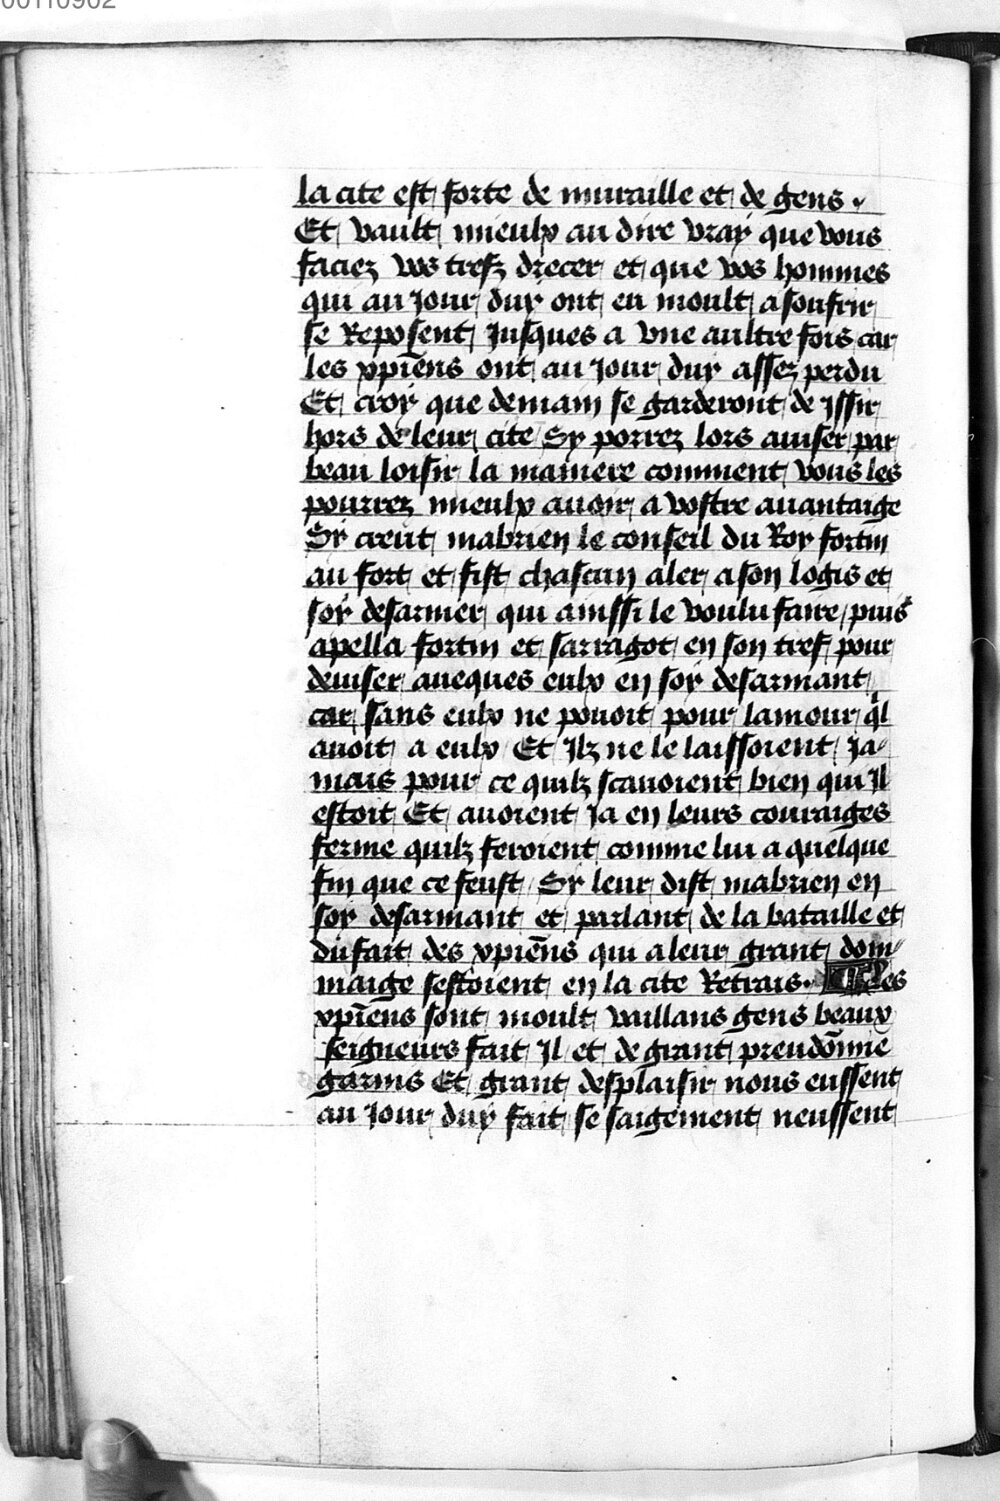 00110902
la cite est forte de muraille et de gens .
Et vault mieulx au dire vray que vous
faciez vos trefz drecer et que vos hommes
qui au Jour duy ont eu moult a soufrir
se Reposent Jusques a vne aultre fois car
les xpīens ont au Jour duy assez perdu
Et croy que demain se garderont de yssir
hors de leur cite Sy porrez lors auiser par
beau loisir la maniere comment vous les
pourrez mieulx auoir a vostre auantaige
Sy creut mabrien le conseil du Roy fortin
au fort et fist chascun aler a son logis et
soy desarmer qui ainssi le voulu faire / puis
apella fortin et sarragot en son tref pour
deuiser auecques eulx en soy desarmant
car sans eulx ne pouoit pour lamour ql
auoit a eulx Et Ilz ne le laissoient Ja-
mais pour ce quilz scauoient bien qui Il
estoit Et auoient Ja en leurs couraiges
ferme quilz feroient comme lui a quelque
fin que ce feust Sy leur dist mabrien en
soy desarmant et parlant de la bataille et
du fait des xpiēns qui a leur grant dom-
maige sestoient en la cite Retrais . Ces
xpīens sont moult vaillans gens beaux
seigneurs fait Il et de grant preudōmie
garnis Et grant desplaisir nous eussent
au Jour duy fait se saigement neussent